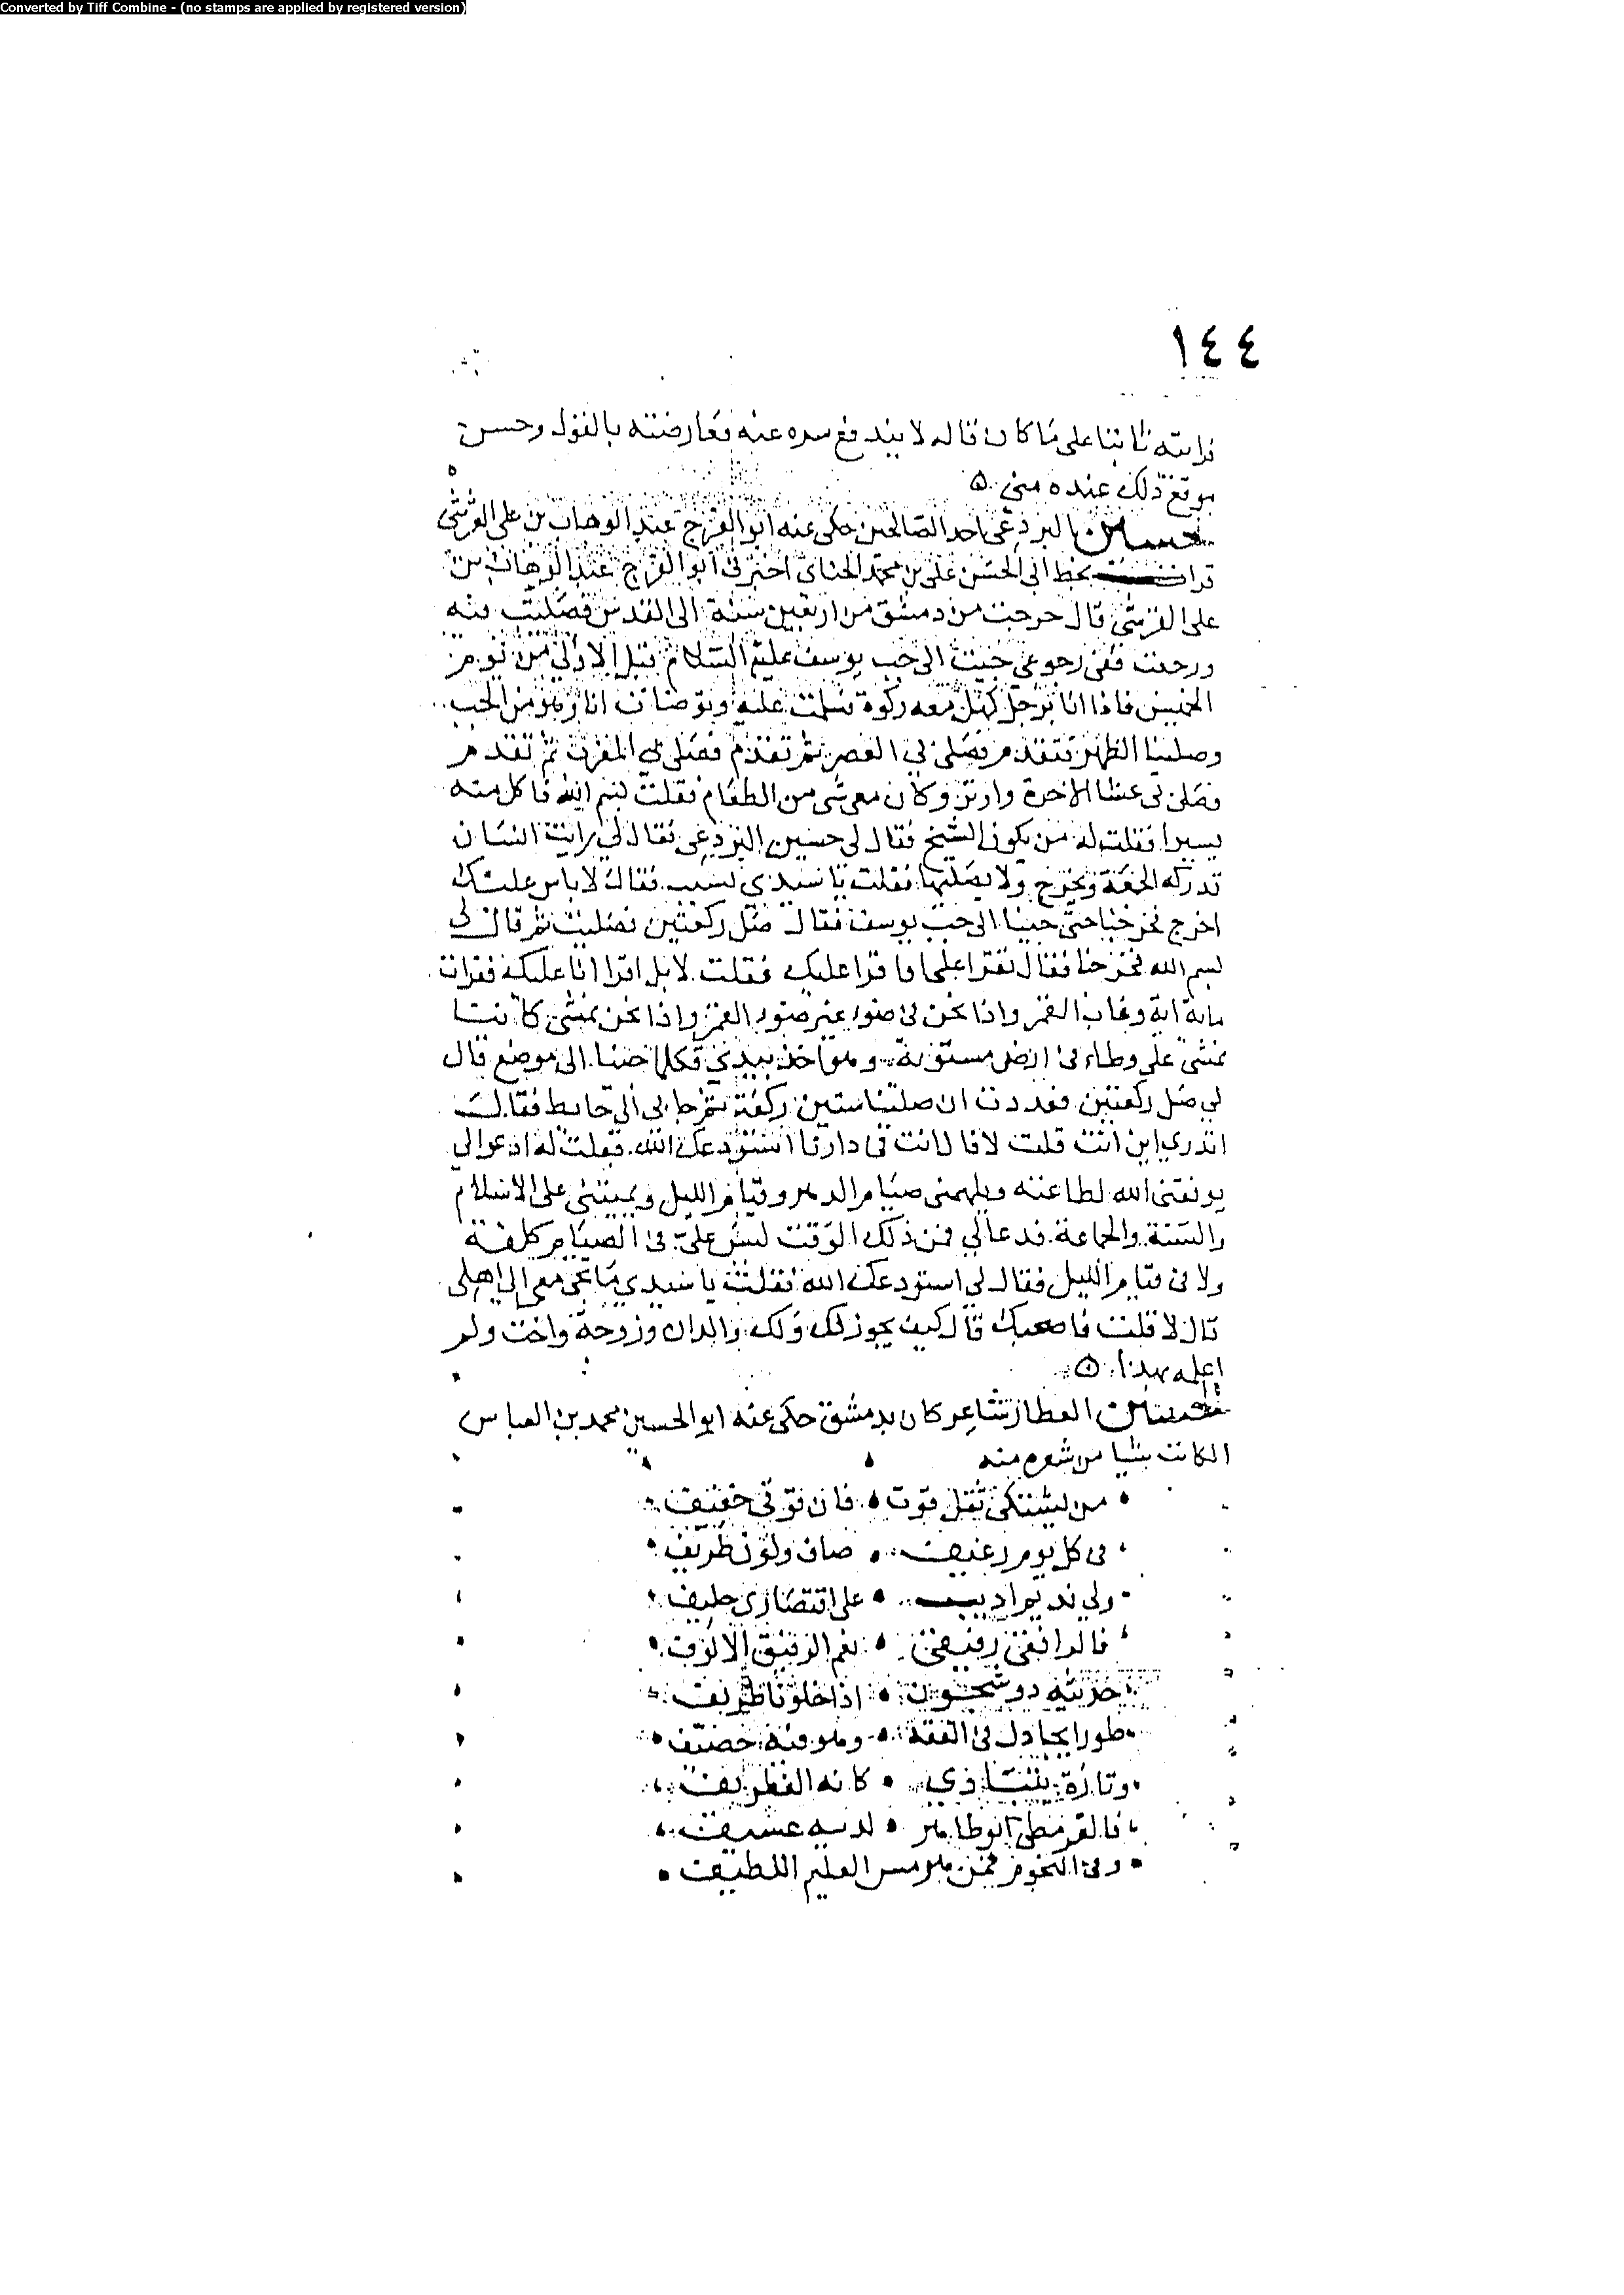 Converted by Tiff Combine - (no stamps are applied by registered version)
١٤٤
فرايته ثابتا على ما كان قاله لا يندفع عنه فعارضته بالقول وحسن
موقع ذلك عنده مني
حسين البردعي احد الصالحين حكى عنه ابو الفرج عبد الوهاب بن علي القرشي
قرات بخط ابي الحسن علي بن محمد الحنائي اخبرني ابو الفرج عبد الوهاب بن
علي القرشي قال خرجت من دمشق من اربعين سنة الى القدس فصليت فيه
ورجعت ففي رجوعي جئت الى جب يوسف عليه السلام قبل الاولى من يوم
الخميس فاذا انا برجل كهل معه ركوة فسلمت عليه وتوضات انا وهو من الجب
وصلينا الظهر فتقدم فصلى بي العصر ثم تقدم فصلى بي المغرب ثم تقدم
فصلى بي عشا الاخرة واوتر وكان معي شي من الطعام فقلت بسم الله فاكل منه
يسيرا فقلت له من يكون الشيخ فقال لي حسين البردعي فقال لي رايت انسان
تدركه الجمعة ويخرج ولا يصليها فقلت يا سيدي لسبب فقال لا باس عليك
اخرج فخرجنا حتى جينا الى جب يوسف فقال صل ركعتين فصليت ثم قال لي
بسم الله فخرجنا فقال تقرا علي او اقرا عليك فقلت لا بل اقرا انا عليك فقرات
ماية اية وغاب القمر واذا نحن في ضوء غير ضوء القمر واذا نحن نمشي كاننا
نمشي على وطاء في ارض مستوية وهو اخذ بيدي فكلما جئنا الى موضع قال
لي صل ركعتين فعددت ان صلينا ستين ركعة ثم جا بي الى حايط فقال
اتدري اين انت قلت لا قال انت في داريا استودعك الله فقلت له ادعو لي
يوفقني الله لطاعته ويلهمني صيام الدهر وقيام الليل ويميتني على الاسلام
والسنة والجماعة فدعا لي فمن ذلك الوقت ليس علي في الصيام كلفة
ولا في قيام الليل فقال لي استودعك الله فقلت يا سيدي ما تجي معي الى اهلي
قال لا قلت فاصحبك قال كيف يجوز لك ولك والدان وزوجة واخت ولم
اعلمه بهذا
حسين العطار شاعر كان بدمشق حكى عنه ابو الحسين محمد بن العباس
الكاتب شيا من شعره منه
من يشتكي ثقل قوت فان قوتي خفيف
في كل يوم رغيف صاف ولون ظريف
ولي نديم اديب على اقتصاري حليف
فالوافقي رفيقي نعم الرفيق الالوف
حديثه ذو شجون اذا خلونا ظريف
طورا يجادل في الفقه وهو فيه خصيف
وتارة يتبازي كانه الغطريف
فالقرمطي ابو طاهر لديه عسيف
وفي النحو فمن هرمس العليم اللطيف